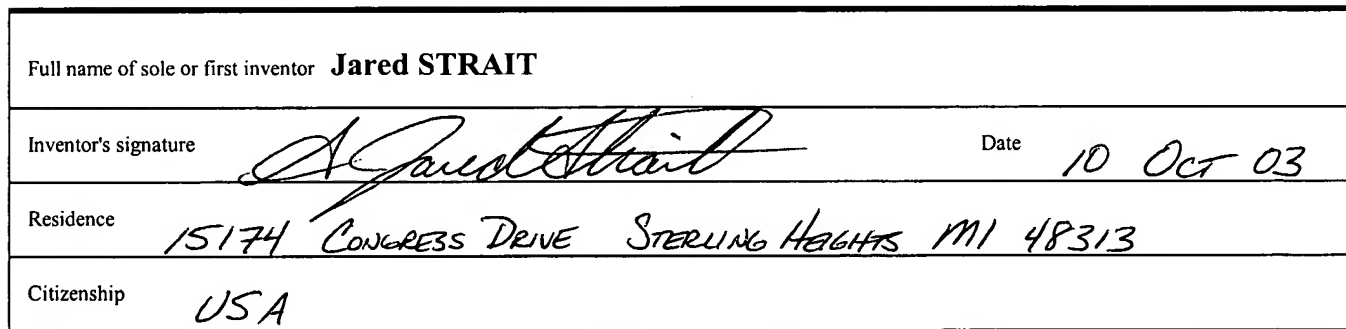 Full name of sole or first inventor Jared STRAIT
Inventor's signature A Jared Strait Date 10 OCT 03
Residence 15174 CONGRESS DRIVE STERLING HEIGHTS MI 48313
Citizenship USA